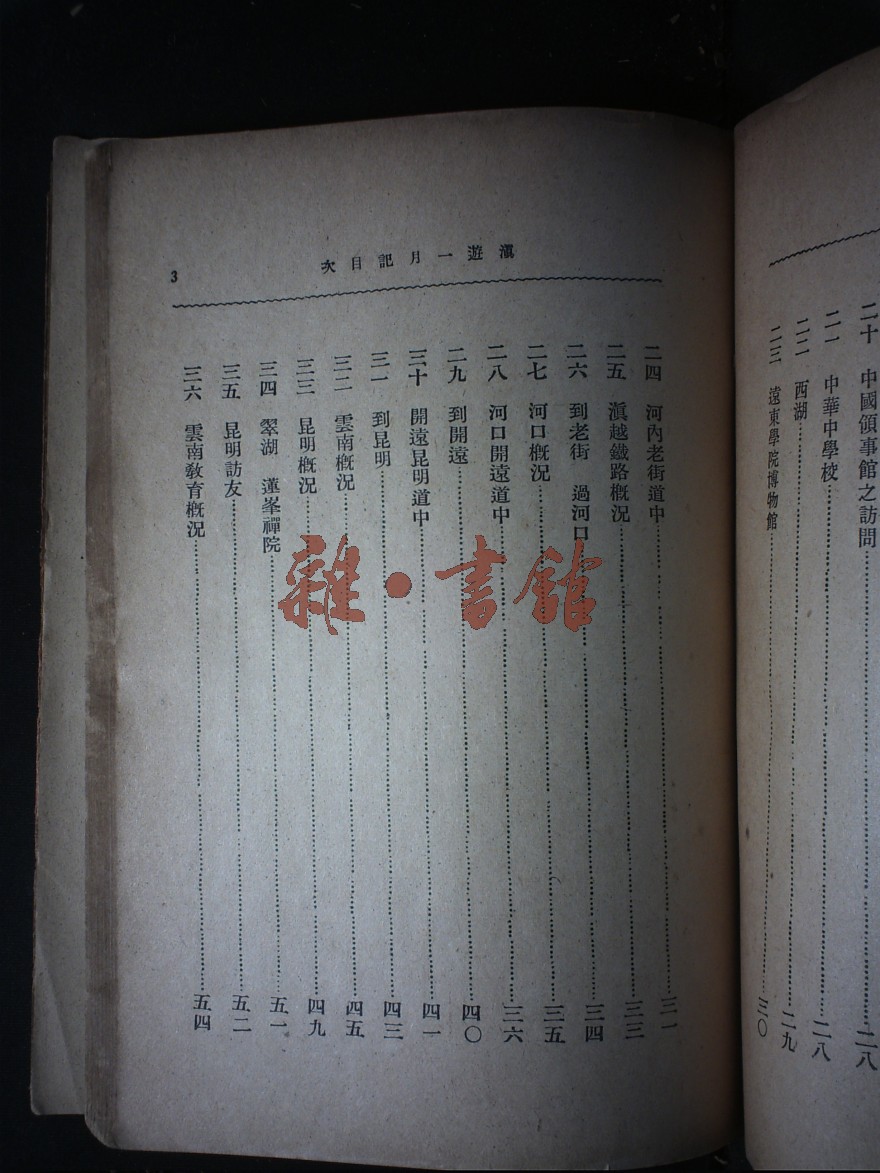 二十　中國領事館之訪問……二八
二一　中華中學校……二八
二二　西湖……二九
二三　遠東學院博物館……三〇
滇遊一月記目次
3
二四　河內老街道中……三一
二五　滇越鐵路概況……三三
二六　到老街　過河口……三四
二七　河口概況……三五
二八　河口開遠道中……三六
二九　到開遠……四〇
三十　開遠昆明道中……四一
三一　到昆明……四三
三二　雲南概況……四五
三三　昆明概況……四九
三四　翠湖　蓮峯禪院……五一
三五　昆明訪友……五二
三六　雲南敎育概況……五四
雜·書館